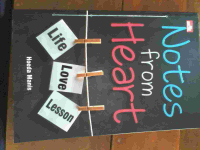 Notes
from
Heart
Life
Love
Lesson
Handa Manis